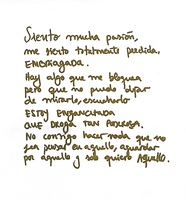 Siento mucha pasión,
me siento totalmente perdida,
EMBRIAGADA.
Hay algo que me bloquea
pero que no puedo dejar
de mirarlo, escucharlo
ESTOY ENGANCHADA
QUE DROGA TAN PODEROSA.
No consigo hacer nada que no
sea pensar en aquello, aguardar
por aquello y solo quiero AQUELLO.